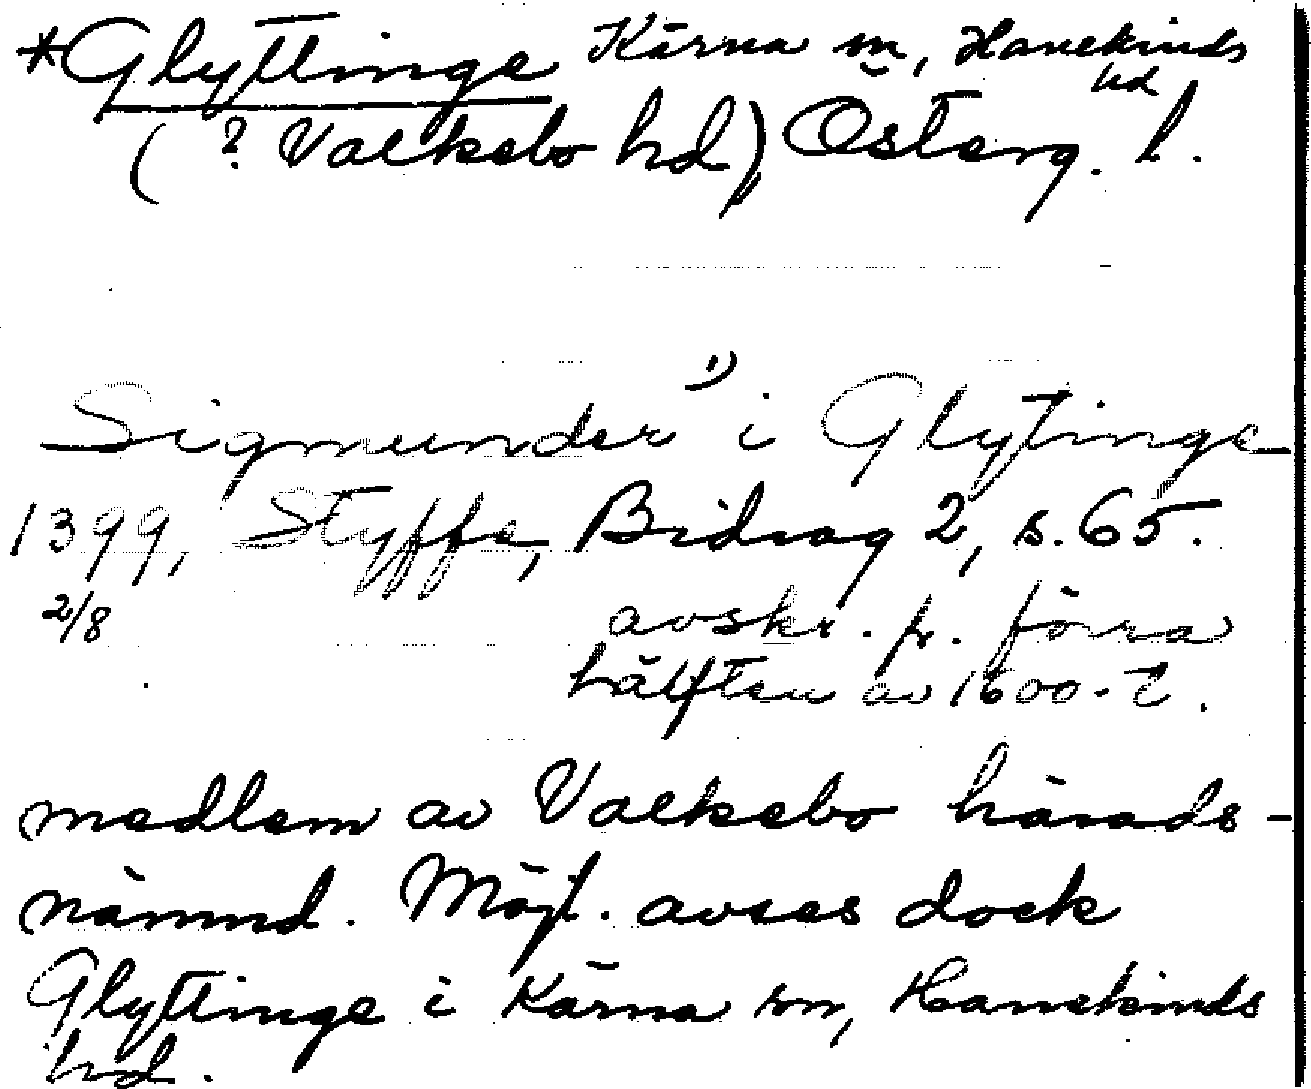 *Glyttinge Kärna sn, Hanekinds
hd
( ? Valkebo hd) Österg. l.
Sigmunder 1) i Glytinge
1399, Styffe, Bidrag 2, s. 65.
2/8 avskr. fr. förra
hälften av 1600-t.
medlem av Valkebo härads-
nämnd. Möjl. avses dock
Glyttinge i Kärna sn, Hanekinds
hd.